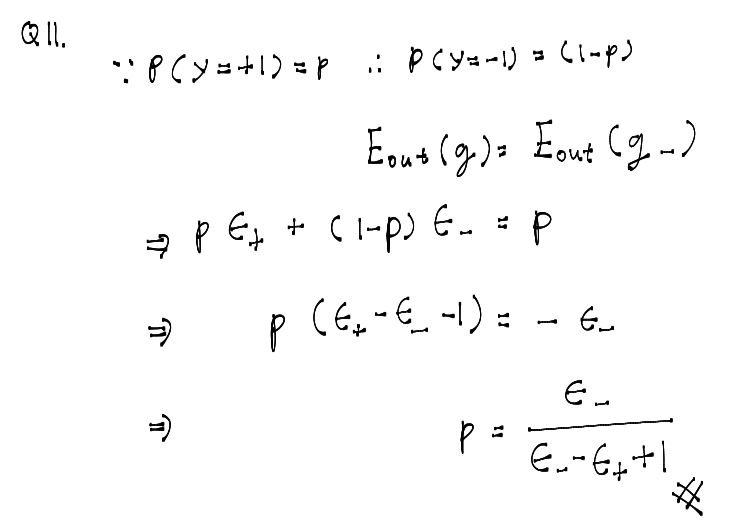 Q11.
∵ P(y=+1) = p ∴ P(y=-1) = (1-p)
E_out(g) = E_out(g_-)
⇒ p ϵ_+ + (1-p) ϵ_- = p
⇒ p (ϵ_+ - ϵ_- -1) = - ϵ_-
⇒ p = ϵ_- / (ϵ_- - ϵ_+ +1) #